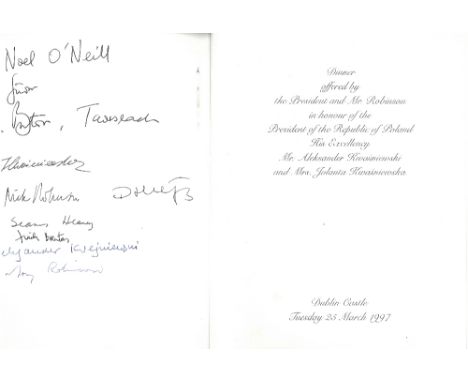 Noel O'Neill
Bruton, Taoiseach
Nick Robinson
Seamus Heaney
Mary Robinson
Dinner
offered by
the President and Mr. Robinson
in honour of the
President of the Republic of Poland
His Excellency
Mr. Aleksander Kwaśniewski
and Mrs. Jolanta Kwaśniewska
Dublin Castle
Tuesday 25 March 1997